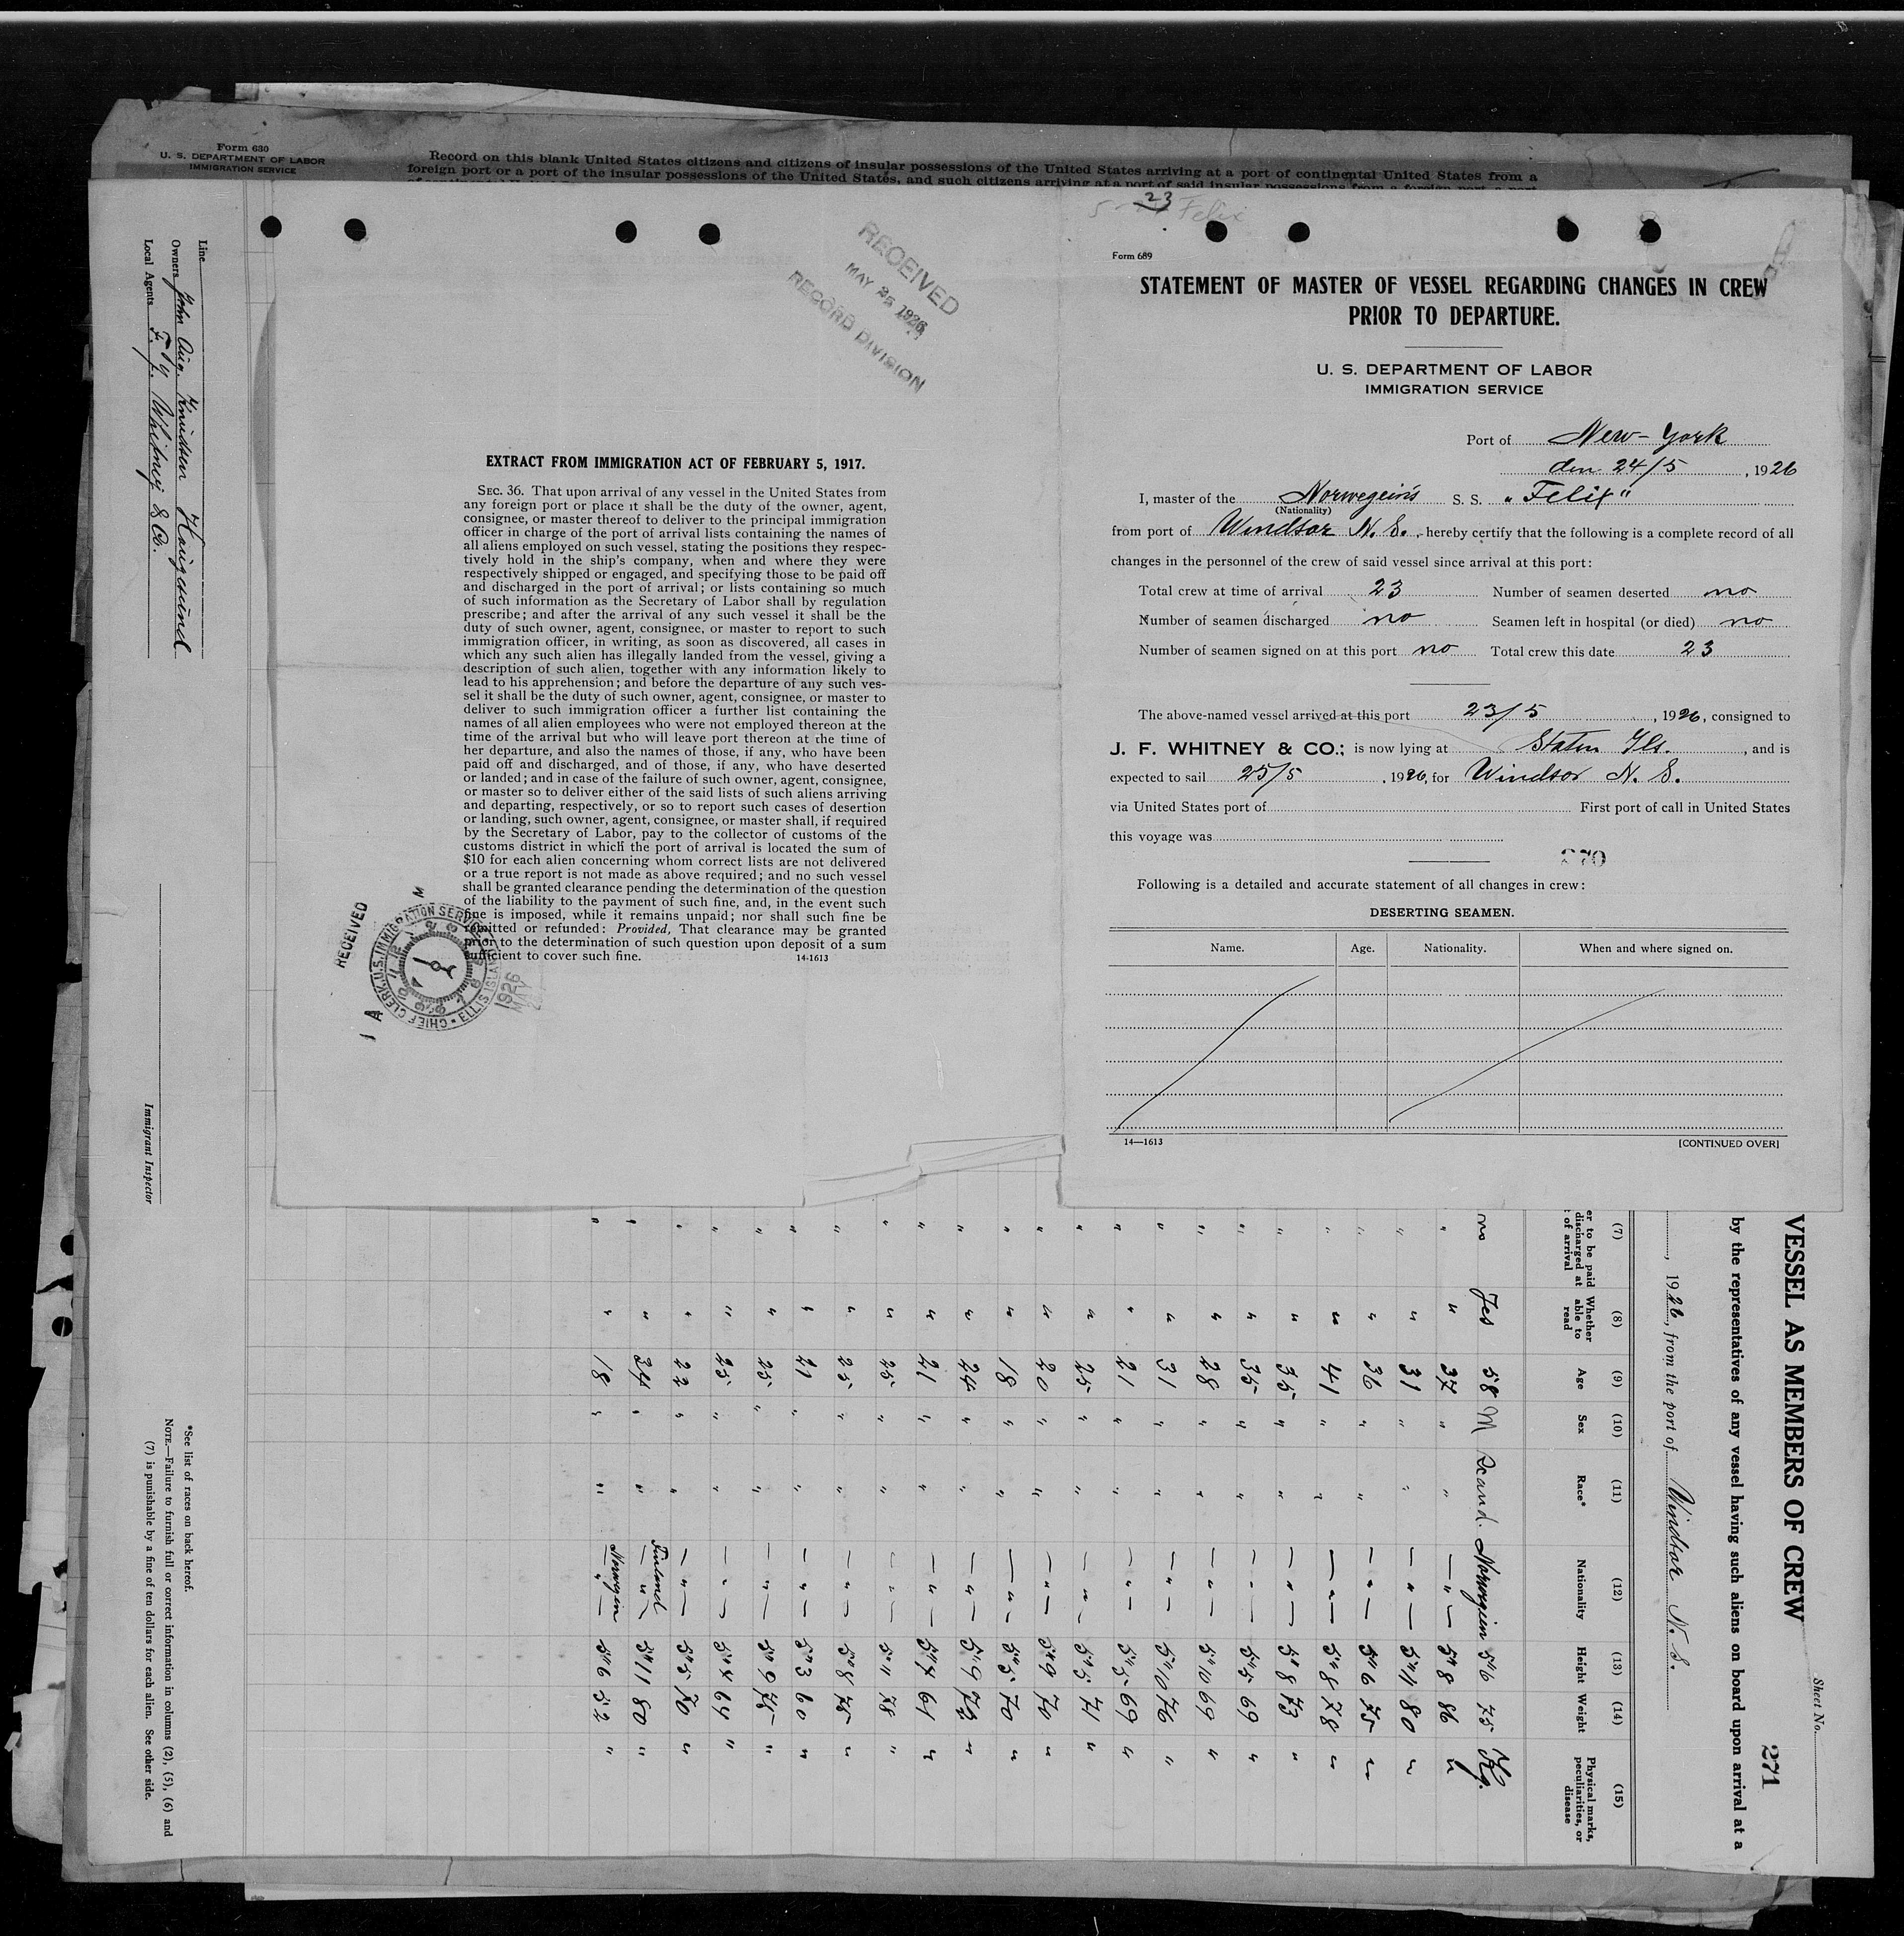 Form 630
U. S. DEPARTMENT OF LABOR
IMMIGRATION SERVICE
Record on this blank United States citizens and citizens of insular possessions of the United States arriving at a port of continental United States from a
foreign port or a port of the insular possessions of the United States, and such citizens arriving at a port of said insular possessions from a foreign port, a port
23
Felix
RECEIVED
MAY 25 1926
RECORD DIVISION
EXTRACT FROM IMMIGRATION ACT OF FEBRUARY 5, 1917.
SEC. 36. That upon arrival of any vessel in the United States from
any foreign port or place it shall be the duty of the owner, agent,
consignee, or master thereof to deliver to the principal immigration
officer in charge of the port of arrival lists containing the names of
all aliens employed on such vessel, stating the positions they respec-
tively hold in the ship's company, when and where they were
respectively shipped or engaged, and specifying those to be paid off
and discharged in the port of arrival; or lists containing so much
of such information as the Secretary of Labor shall by regulation
prescribe; and after the arrival of any such vessel it shall be the
duty of such owner, agent, consignee, or master to report to such
immigration officer, in writing, as soon as discovered, all cases in
which any such alien has illegally landed from the vessel, giving a
description of such alien, together with any information likely to
lead to his apprehension; and before the departure of any such ves-
sel it shall be the duty of such owner, agent, consignee, or master to
deliver to such immigration officer a further list containing the
names of all alien employees who were not employed thereon at the
time of the arrival but who will leave port thereon at the time of
her departure, and also the names of those, if any, who have been
paid off and discharged, and of those, if any, who have deserted
or landed; and in case of the failure of such owner, agent, consignee,
or master so to deliver either of the said lists of such aliens arriving
and departing, respectively, or so to report such cases of desertion
or landing, such owner, agent, consignee, or master shall, if required
by the Secretary of Labor, pay to the collector of customs of the
customs district in which the port of arrival is located the sum of
$10 for each alien concerning whom correct lists are not delivered
or a true report is not made as above required; and no such vessel
shall be granted clearance pending the determination of the question
of the liability to the payment of such fine, and, in the event such
fine is imposed, while it remains unpaid; nor shall such fine be
remitted or refunded: Provided, That clearance may be granted
prior to the determination of such question upon deposit of a sum
sufficient to cover such fine.
14-1613
RECEIVED
CHIEF CLERK, U.S. IMMIGRATION SERVICE
ELLIS ISLAND
1926
MAY
Form 689
STATEMENT OF MASTER OF VESSEL REGARDING CHANGES IN CREW
PRIOR TO DEPARTURE.
U. S. DEPARTMENT OF LABOR
IMMIGRATION SERVICE
Port of New-York
den 24/5, 1926
I, master of the Norwegein's S. S. "Felix"
(Nationality)
from port of Windsor N. S., hereby certify that the following is a complete record of all
changes in the personnel of the crew of said vessel since arrival at this port:
Total crew at time of arrival 23 Number of seamen deserted no
Number of seamen discharged no Seamen left in hospital (or died) no
Number of seamen signed on at this port no Total crew this date 23
The above-named vessel arrived at this port 23/5, 1926, consigned to
J. F. WHITNEY & CO.; is now lying at Staten Ils., and is
expected to sail 25/5, 1926, for Windsor N. S.
via United States port of First port of call in United States
this voyage was
270
Following is a detailed and accurate statement of all changes in crew:
DESERTING SEAMEN.
Name. Age. Nationality. When and where signed on.
14—1613
[CONTINUED OVER]
Line
Owners John Aug. Knudsen Haugesund
Local Agents F. J. Whitney & Co.
Immigrant Inspector
Sheet No.
271
VESSEL AS MEMBERS OF CREW
by the representatives of any vessel having such aliens on board upon arrival at a
, 1926, from the port of Windsor N. S.
(7) (8) (9) (10) (11) (12) (13) (14) (15)
er to be paid discharged at of arrival
Whether able to read
Age
Sex
Race*
Nationality
Height
Weight
Physical marks, peculiarities, or disease
no Yes 58 M Scand. Norwegien 5"6 75 Kg.
" " 37 " " —"— 5"8 86 "
" " 31 " " —"— 5"11 80 "
" " 36 " " —"— 5"6 75 "
" " 41 " " —"— 5"8 78 "
" " 35 " " —"— 5"8 73 "
" " 35 " " —"— 5"5 69 "
" " 28 " " —"— 5"10 69 "
" " 31 " " —"— 5"10 76 "
" " 21 " " —"— 5"5 69 "
" " 25 " " —"— 5"5 71 "
" " 20 " " —"— 5"9 70 "
" " 18 " " —"— 5"5 70 "
" " 24 " " —"— 5"9 72 "
" " 21 " " —"— 5"4 61 "
" " 25 " " —"— 5"11 78 "
" " 25 " " —"— 5"8 75 "
" " 21 " " —"— 5"3 60 "
" " 25 " " —"— 5"9 75 "
" " 25 " " —"— 5"4 64 "
" " 22 " " —"— 5"5 70 "
" " 34 " " Finland 5"11 80 "
" " 18 " " Norwegien 5"6 52 "
*See list of races on back hereof.
NOTE.—Failure to furnish full or correct information in columns (2), (5), (6) and
(7) is punishable by a fine of ten dollars for each alien. See other side.